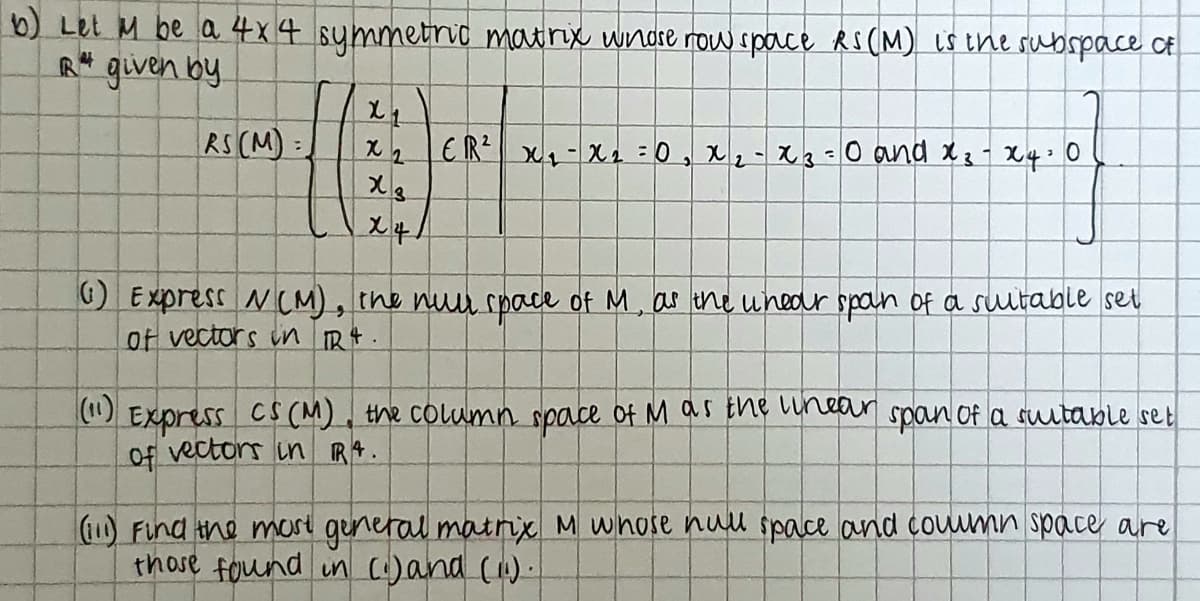 b) Let M be a 4x4 symmetric matrix whose row space RS(M) is the subspace of
R⁴ given by
RS(M) = { (x₁ x₂ x₃ x₄) ∈ R² | x₁ - x₂ = 0, x₂ - x₃ = 0 and x₃ - x₄ = 0 }.
(i) Express N(M), the null space of M, as the linear span of a suitable set
of vectors in R⁴.
(ii) Express CS(M), the column space of M as the linear span of a suitable set
of vectors in R⁴.
(iii) Find the most general matrix M whose null space and column space are
those found in (i) and (ii).